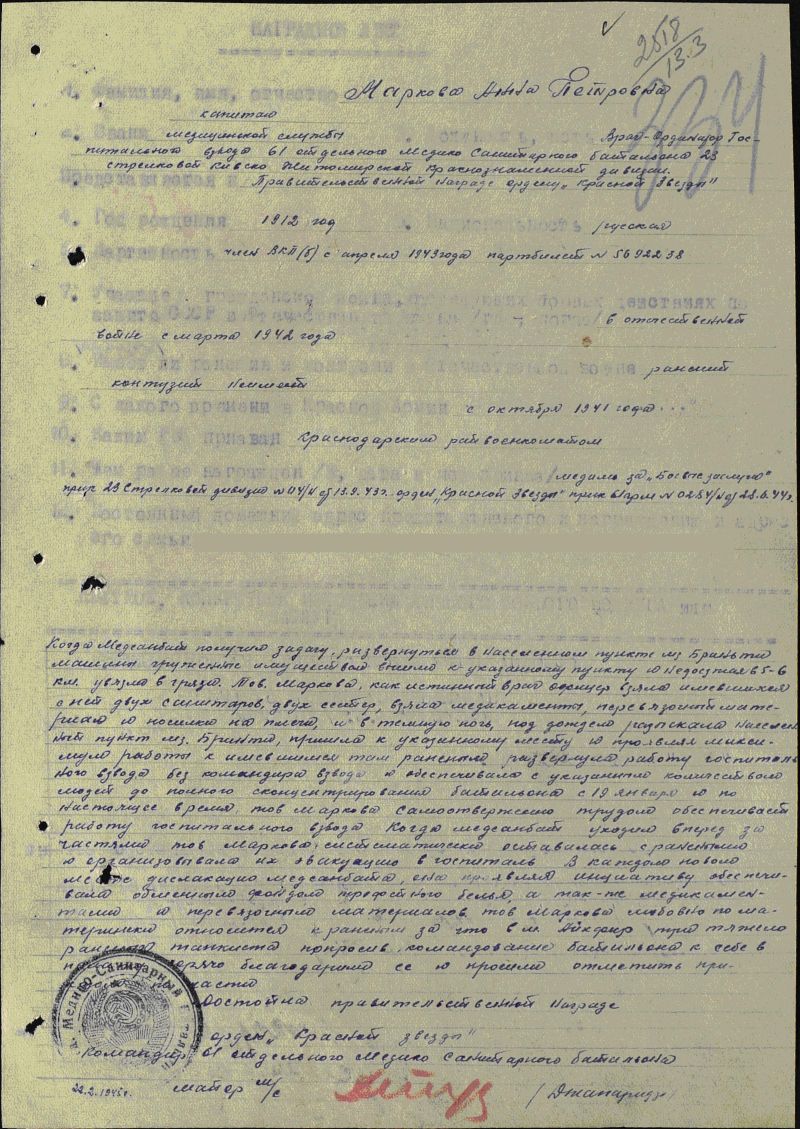 НАГРАДНОЙ ЛИСТ
2518
13.3
1. Фамилия, имя, отчество Маркова Анна Петровна
капитан
2. Звание медицинской службы Врач-Ординатор Гос-
питального взвода 61 отдельного Медико Санитарного батальона 23
стрелковой Киевско-Житомирской Краснознаменной дивизии.
Представляется к Правительственной награде ордену „Красной Звезды"
4. Год рождения 1912 год русская
Партийность член ВКП(б) с апреля 1943 года партбилет N 5692238
7. Участие в гражданской войне, последующих боевых действиях по
защите СССР в отечественной
войне с марта 1942 года
8. Имеет ли ранения и контузии в отечественной войне ранений
контузий не имеет
9. С какого времени в Красной Армии с октября 1941 года
10. Каким РВК призван Краснодарским райвоенкоматом
11. Чем ранее награжден медаль за „Боевые заслуги"
прик. 23 Стрелковой дивизии N 04/н от 13.9.43г. орден „Красной Звезды"
12. Постоянный домашний адрес представляемого к награждению и адрес
его семьи
Когда Медсанбат получил задачу, развернуться в населенном пункте
машины груженные имуществом вышли к указанному пункту и не доезжая 5-6
км. увязло в грязи. Тов. Маркова, как истинный врач офицер взяла имевшихся
с ней двух санитаров, двух сестер, взяла медикаменты, перевязочный мате-
риал и носилки на плечи, и в темную ночь, под дождем разыскала населен-
ный пункт пришла к указанному месту и проявляя макси-
мум работы к имевшимся там раненым развернула работу госпиталь-
ного взвода без командира взвода и обеспечивала с указанным количеством
людей до полного сконцентрирования батальона с 19 января и по
настоящее время, тов Маркова самоотверженно трудом обеспечивает
работу госпитального взвода Когда медсанбат уходил вперед за
частями тов Маркова систематически оставалась с ранеными
и организовывала их эвакуацию в госпиталь В каждом новом
месте дислокации медсанбата, она проявляя инициативу обеспечи-
вала обменным фондом трофейного белья, а так-же медикамен-
тами и перевязочным материалов тов Маркова любовно по ма-
терински относится к раненым за что в м. три тяжело
раненых танкиста попросив командование батальона к себе в
горячо благодарили ее и просили отметить при-
части
Достойна правительственной награде
орден „Красной звезды"
Командир 61 отдельного Медико санитарного батальона
22.2.1945г. майор м/с (Джапаридзе)
Медико-Санитарный